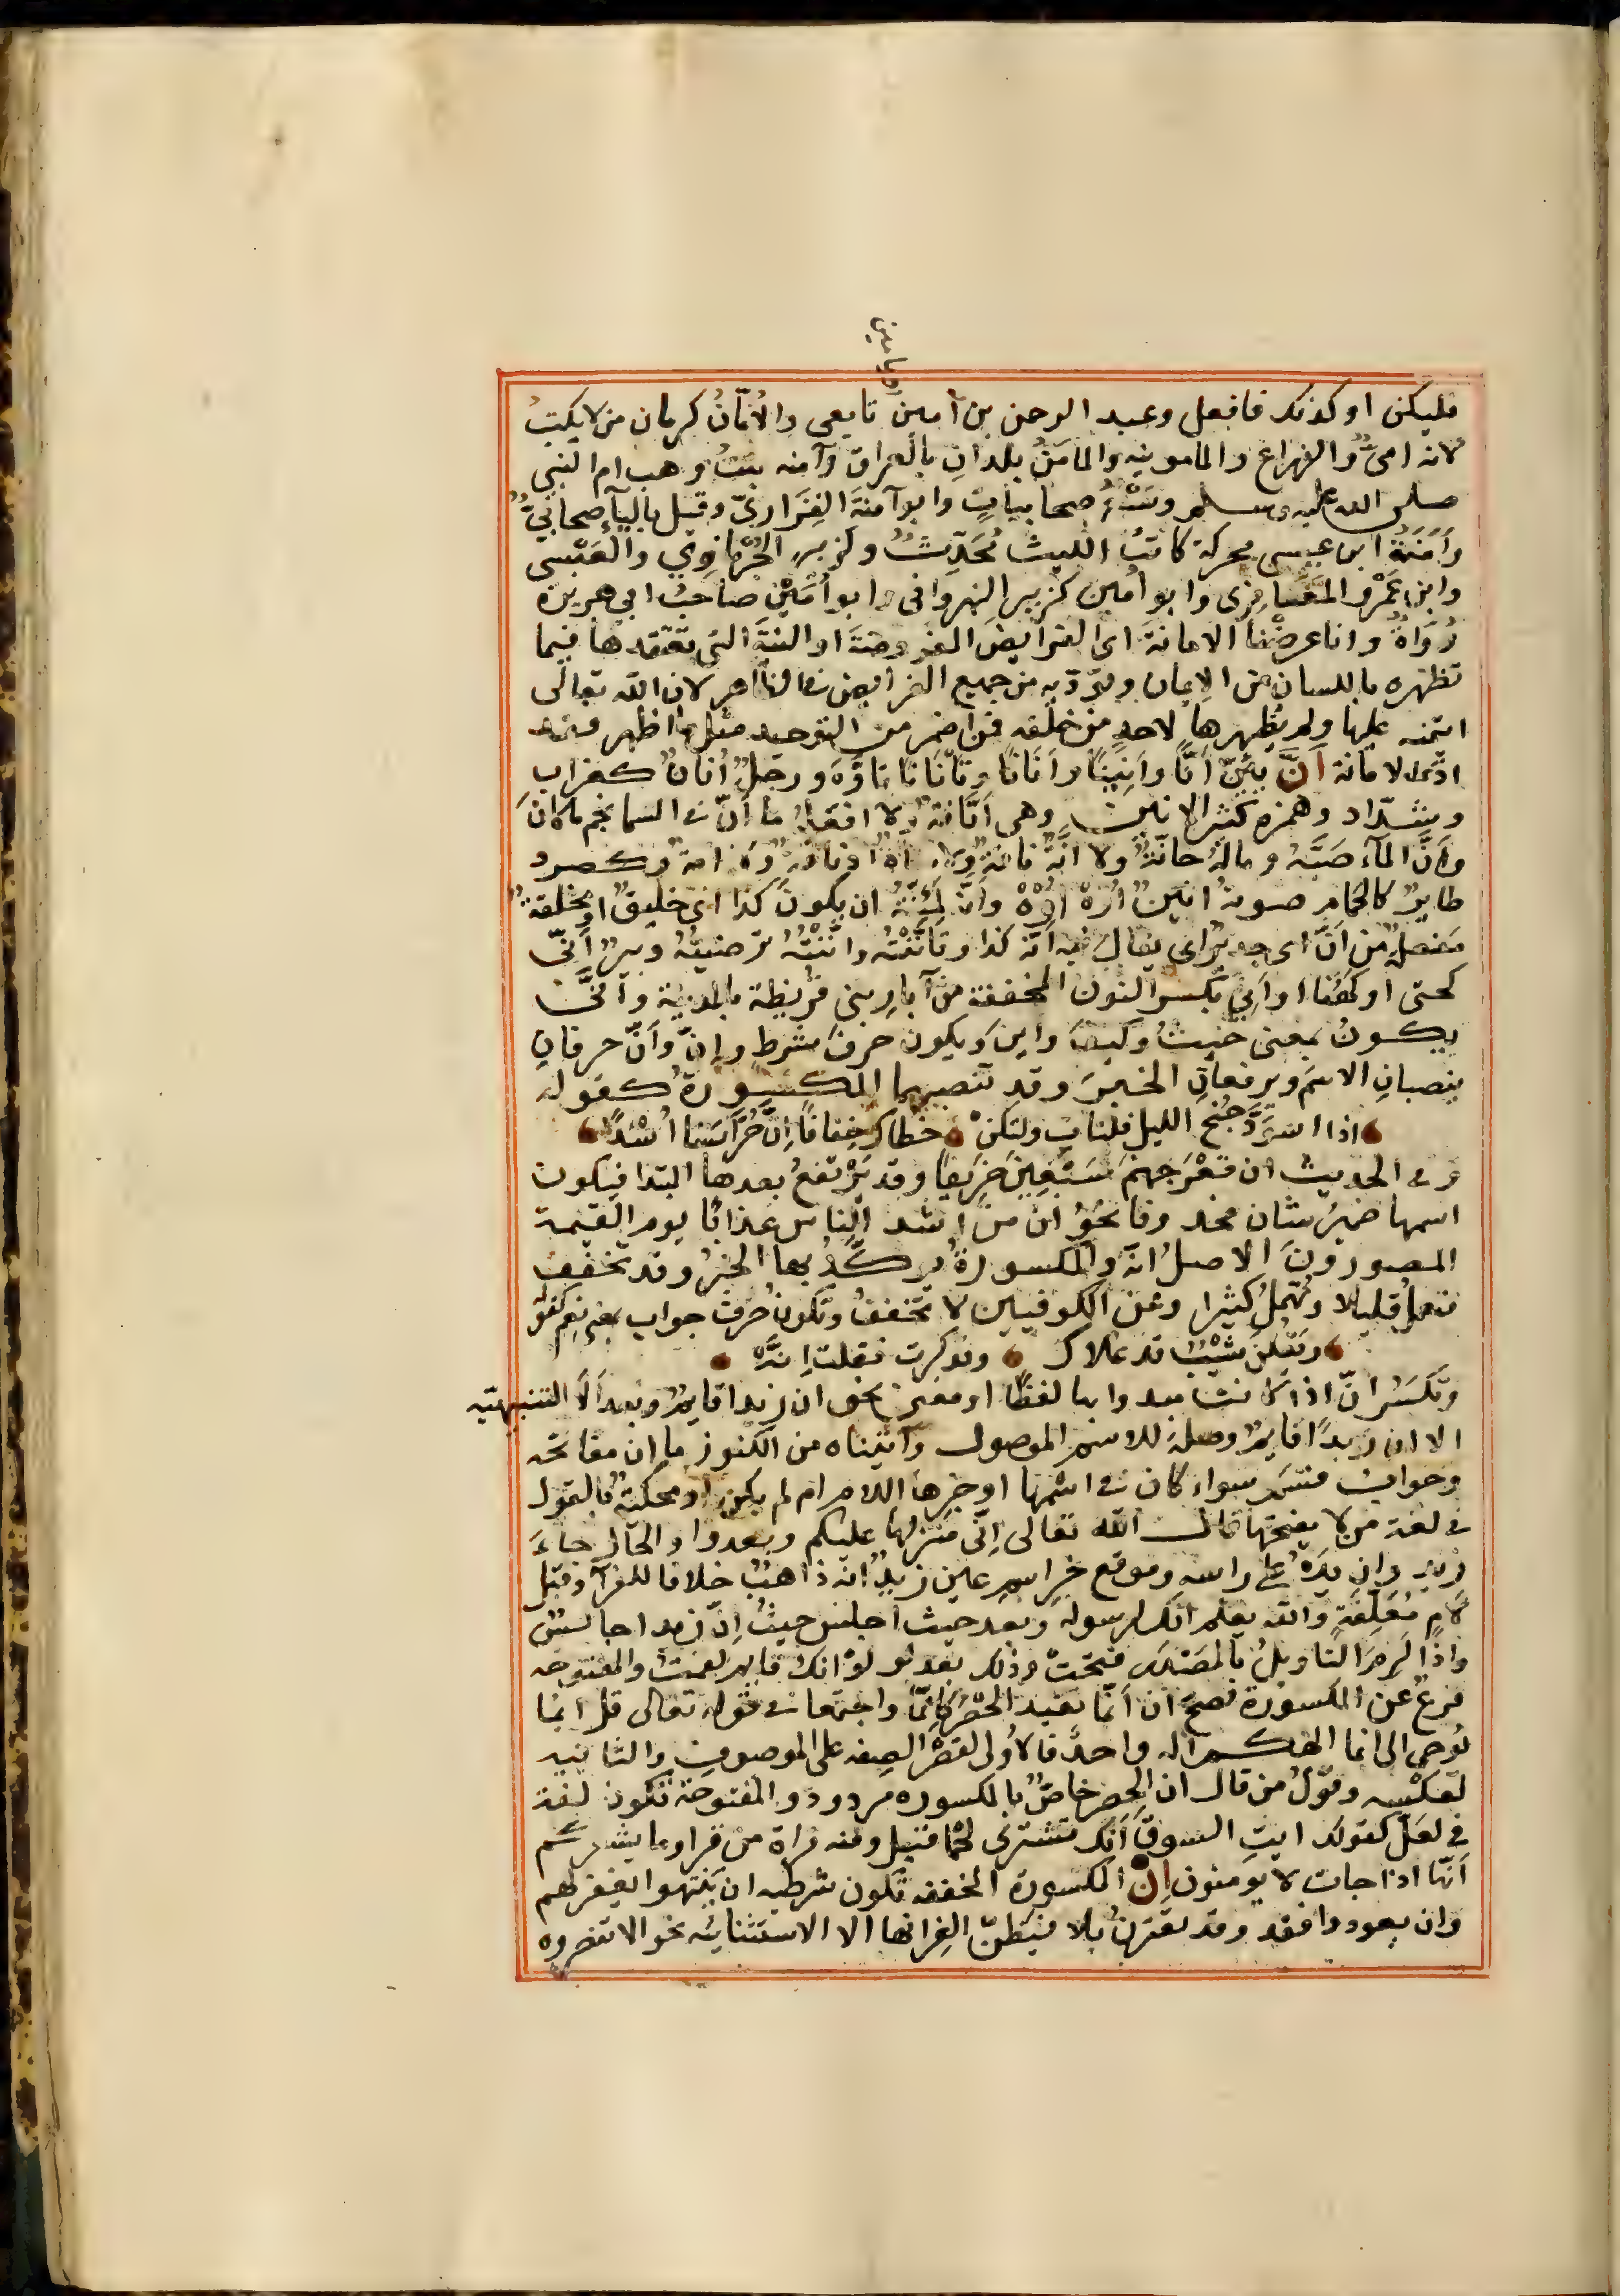 ويامين
فليكن او كذلك فافعل وعبد الرحمن بن آمين تابعى والأُمّانُ كرمان من لا يكتبُ
لانه امىٌّ والزراع والمامونيه والمامَنُ بلدانِ بالعراق وآمنه بنتُ وهب ام النبي
صلى الله عليه وسلم وسَبْعُ صحابياتٍ وابو آمنةَ الفِزَارىّ وقيل بالياء صحابيٌّ
وأمَنَةُ ابن عيسى محركة كاتبُ الليث مُحَدِّثٌ وكزبير الحُرْمازِيّ والعَبْسى
وابن عَمْرو المَعَافِرى وابو امين كزبير البهرانى وابو أُمَيْن صاحبُ ابي هريرة
رُوَاةٌ وانا عرضْنا الامانةَ اى الفرايضَ المفروضةَ او النيّةَ التى تعتقدها فيما
تظهره باللسان من الايمان وتؤدّيه من جميع الفرايض فى الظاهر لان الله تعالى
ائتمنه عليها ولم يُظهرها لاحدٍ من خلقه فمن اضمر من التوحيد مثل ما اظهر فقد
ادّى الامانة أَنَّ يَئِنّ أَنًّا وأَنِينًا وأُنَانًا وتَأْنَانًا تَأَوَّهَ ورجلٌ أُنَانٌ كغرابٍ
وشدّاد وهمزه كثير الانين وهى أَنّانَةٌ ولا افعلُه ما أَنّ فى السما نجم ما كانَ
وأَنَّ المآءَ صَبَّهُ وماله حانّةٌ ولا آنّةٌ ناقةٌ ولا شاةٌ او ناقة ولا امةٌ وكصرد
طايرٌ كالحمام صوته انينٌ اُوْهْ اُوْهْ وانّه لَمَئِنّةٌ ان يكونَ كذا اى خليقٌ او مخلقة
مَفعلةٌ من أَنّ اى جديرٌ اى يقال فيه انّه كذا وتأَنّنْتُه وانّنْتُه ترضيتُه وبيرُ أَنّى
كحتى او كهُنا او أَنِي بكسر النون المخففة من آبار بنى قريظة بالمدينة وأنَّى
يكونُ بمعنى حيثُ وكيفَ واينَ ويكون حرفَ شرطٍ وإنَّ وأَنَّ حرفان
ينصبانِ الاسمَ ويرفعانِ الخبرَ وقد تنصبهما المكسورة كقوله
اذا اسوَدَّ جُنحُ الليل فلتات ولتكنْ خطاك خِفافًا إنّ حُرّاسَنا أُسْدًا
وفى الحديث ان قعْرَ جهنمَ سَبْعِينَ خَريفًا وقد يَرْتفعُ بعدها المبتدا فيكون
اسمها ضميرَ شانٍ محذوفا نحوُ انّ من اشد الناس عذابًا يوم القيمة
المصورونَ الاصلُ انّه والمكسورةُ يؤكَّدُ بها الخبرُ وقد تخفف
فتعملُ قليلا وتُهْمَلُ كثيرا وعن الكوفيين لا تخففُ وتكونُ حَرفَ جواب بمعنى نعم كقوله
ويَقُلنَ شَيْبٌ قد علاك وقد كبرت فقلت إنّهْ
وتكسَرُ انّ اذا كانت مبدوا بها لفظًا او معنى نحو ان زيدا قايمٌ وبعد أَلا التنبيهيّه
الا ان زيدًا قايمٌ وصلةً للاسم الموصول وآتيناه من الكنوز ما ان مفاتحه
وجوابَ قسَمٍ سواء كان فى اسمها او خبرها اللام ام لم يكن او محكيةً بالقول
فى لغة من لا يفتحها قال الله تعالى إنّى منزلها عليكم وبعد واو الحال جاءَ
زيد وان يدَهُ على راسه وموقع خبراسم عين زيدٌ إنّه ذاهبٌ خلافا للفرآ وقبل
لامٍ مُعَلّقةٍ والله يعلم انك لرسوله وبعد حيث اجلس حيثُ إنّ زيدا جالسٌ
واذا لزِمَ التاويلُ بالمَصْدَر فتحَتْ وذلك بعد لو لوْ انك قايم لقمتُ والمفتوحه
فرعٌ عن المكسورة فصحَّ ان أَنّما تفيد الحَصْرَ كإنّما واجتمعا فى قوله تعالى قل انما
يُوحى الى انما الهكم اله واحد فالأُولى لقصْر الصفه على الموصوف والثانيه
لعكسه وقولُ من قال ان الحصر خاصٌّ بالمكسوره مردود والمفتوحة تكون لغة
فى لعَلّ كقولك ايت السوقَ أَنّك تشترى لحْمًا قيل ومنه قراة من قرا وما يشعركم
أنّها اذا جات لا يومنون إنْ المكسورة المخففه تكون شرطيه ان يَنتهوا يغفر لهم
وان يعودوا فقد وقد تقترنُ بلا فيظنّ الغِرّ انها الا الاستثنائيه نحو الا تنصروه